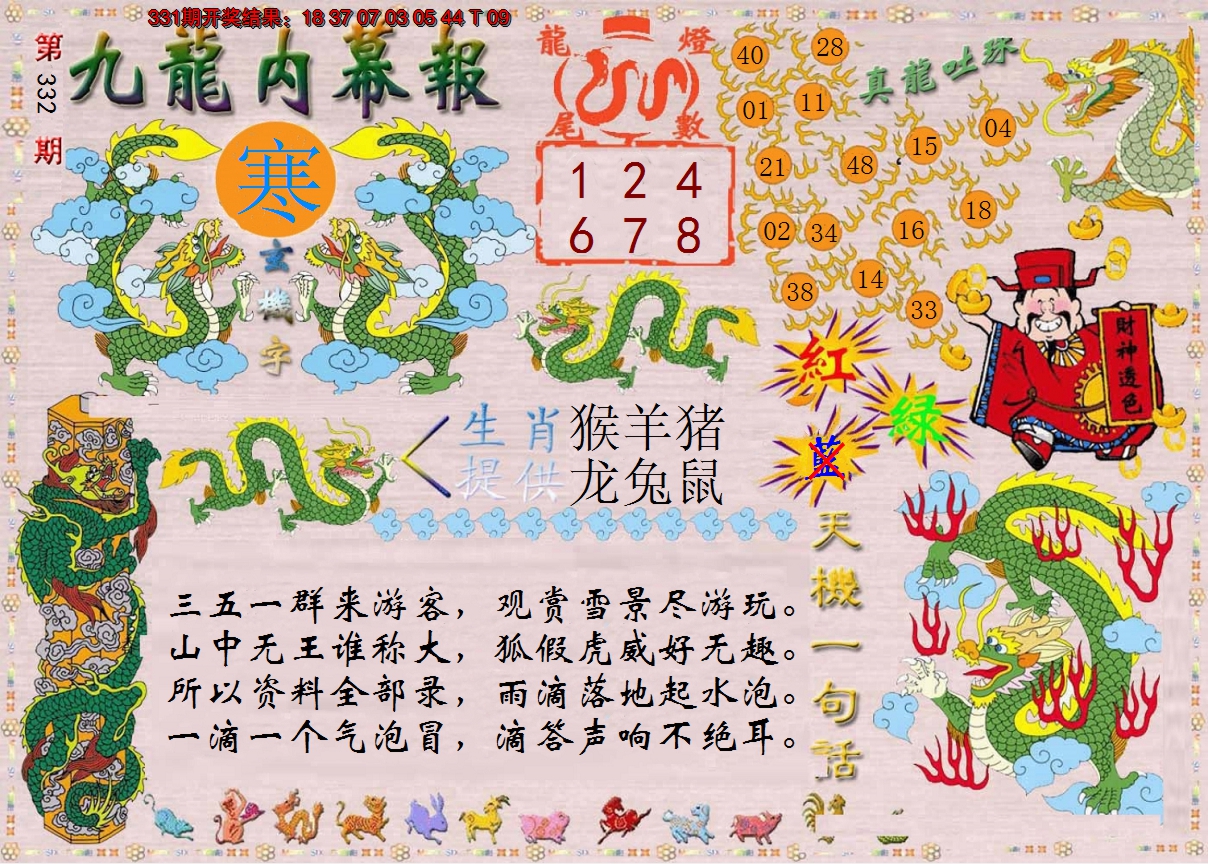 331期开奖结果：18 37 07 03 05 44 T 09
第332期
九龍内幕報
寒
玄機字
龍燈
尾數
1 2 4
6 7 8
真龍吐珠
40 28
01 11
15 04
21 48
18
02 34 16
14
38 33
財神透色
紅
綠
藍
生肖 猴羊猪
提供 龙兔鼠
天機一句話
三五一群来游客，观赏雪景尽游玩。
山中无王谁称大，狐假虎威好无趣。
所以资料全部录，雨滴落地起水泡。
一滴一个气泡冒，滴答声响不绝耳。